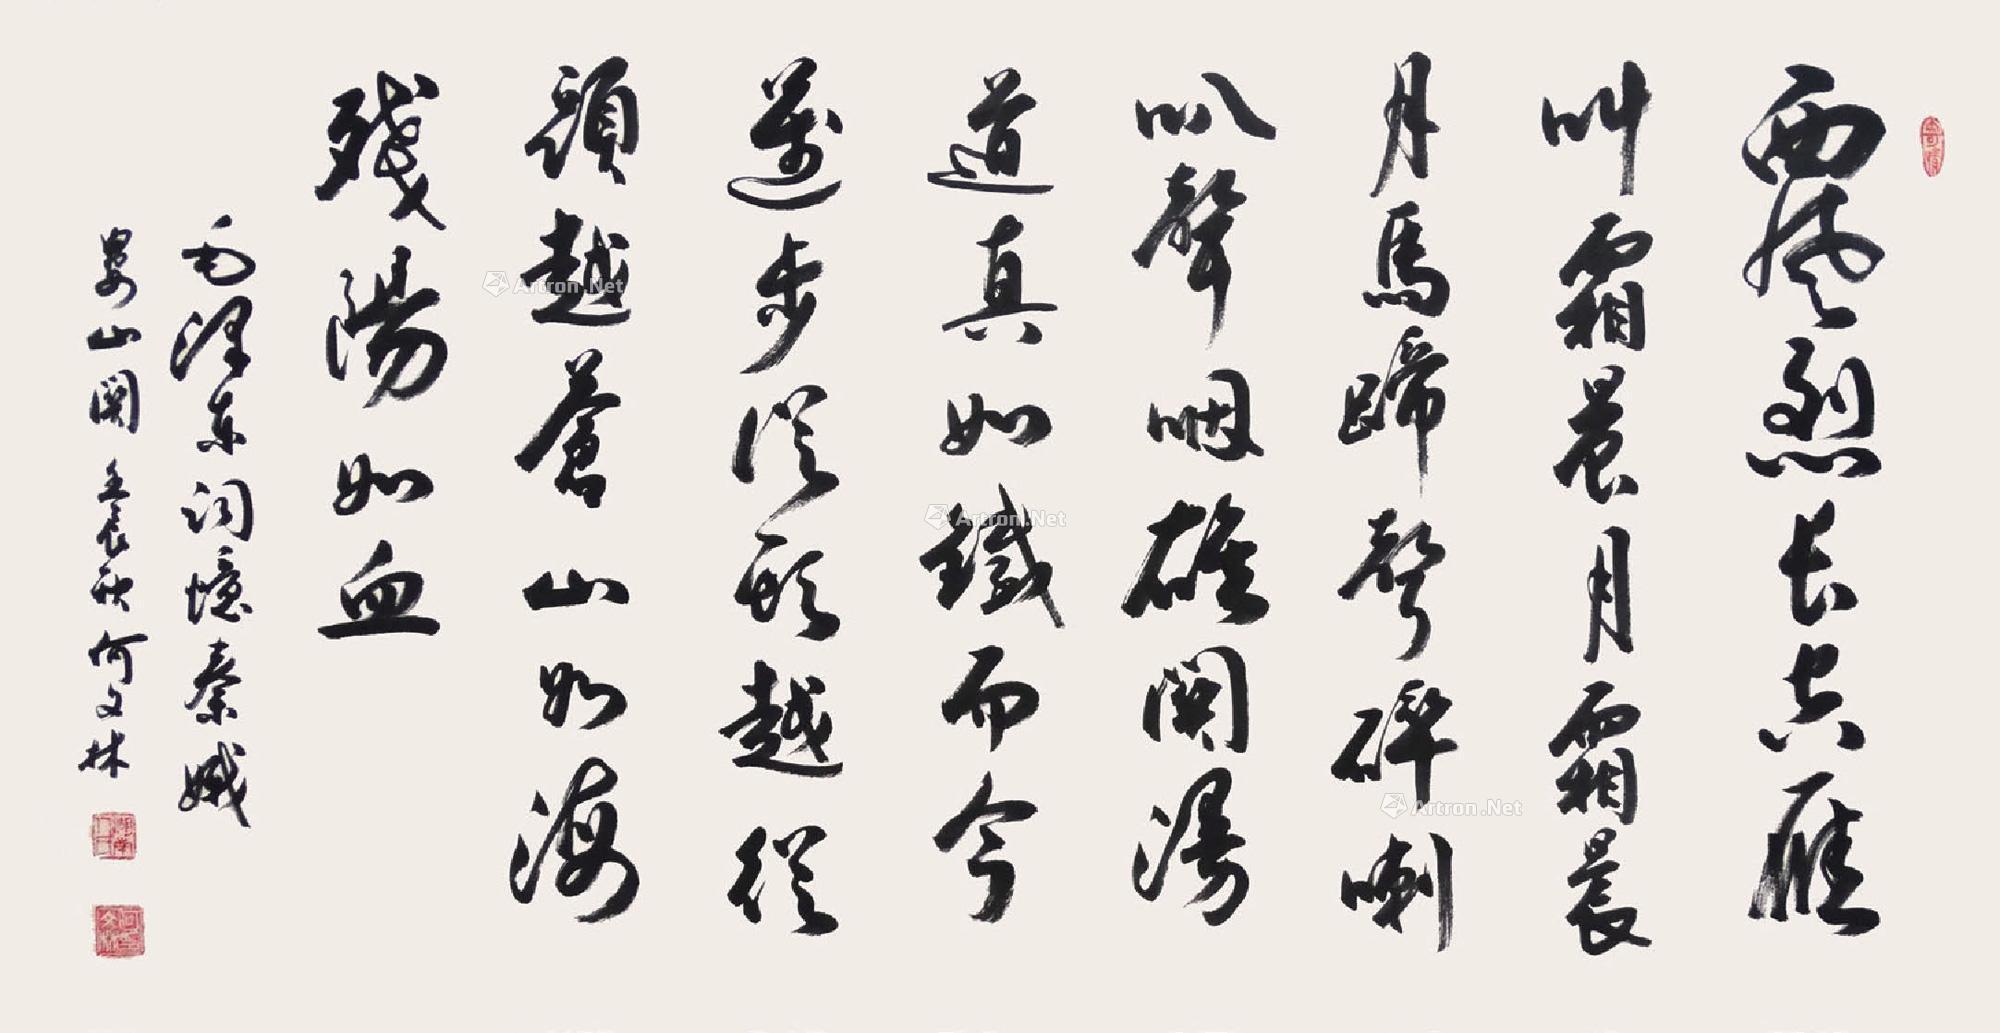 西風烈長空雁
叫霜晨月霜晨
月馬蹄聲碎喇
叭聲咽雄關漫
道真如鐵而今
邁步從頭越從
頭越蒼山如海
殘陽如血
毛澤東詞憶秦娥
婁山關 壬辰秋 何文林
Artron.Net
Artron.Net
Artron.Net